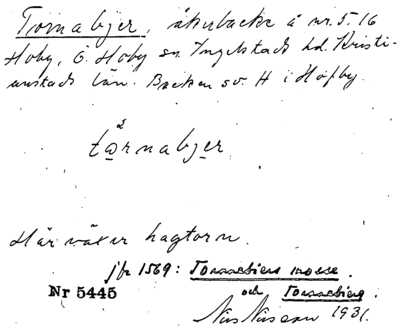 Tornabjer, åkerbacke å nr. 5-16
Hoby, Ö. Hoby sn. Ingelstads hd. Kristi-
anstads län. Backen sv. H i Höfby.
2
tornabjer
Här växer hagtorn.
jfr 1569: Tornebiers mosse.
Nr 5445 och Tornebierg
Nils Nilsson 1931.